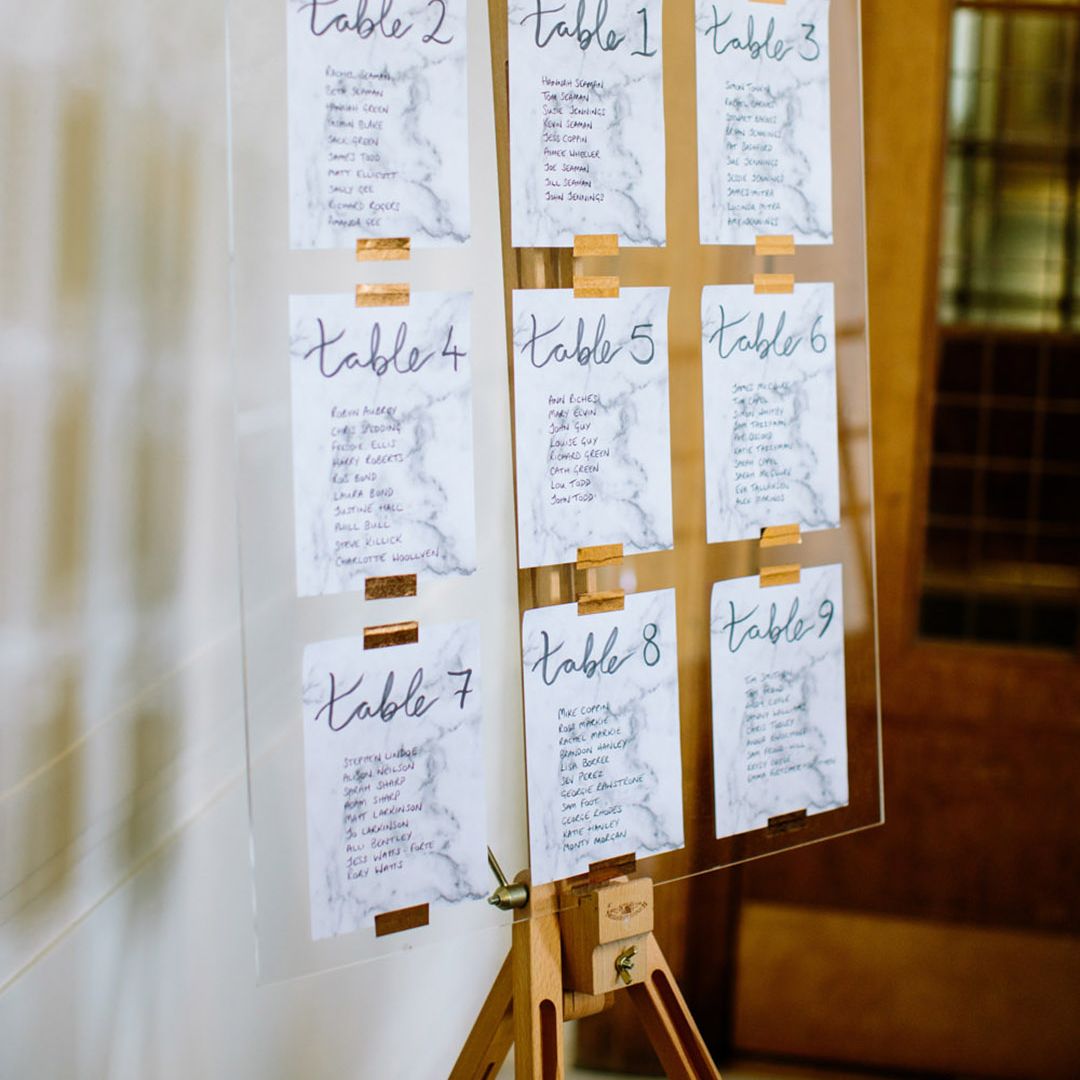 table 2
RACHEL SEAMAN
BETH SEAMAN
HANNAH GREEN
YASMIN BLAKE
JACK GREEN
JAMES TODD
MATT ELLICOTT
SALLY GEE
RICHARD ROGERS
AMANDA GEE
table 1
HANNAH SEAMAN
TOM SEAMAN
SUSIE JENNINGS
KEVIN SEAMAN
JESS COPPIN
AIMEE WHEELER
JOE SEAMAN
JILL SEAMAN
JOHN JENNINGS
table 3
SIMON
RACHEL BARNES
STEWART BARNES
BRIAN JENNINGS
PAT BASHFORD
SUE JENNINGS
JESSIE JENNINGS
JAMES MITRA
LUCINDA MITRA
JENNINGS
table 4
ROBYN AUBREY
CHRIS SPEDDING
FREDDIE ELLIS
HARRY ROBERTS
ROB BOND
LAURA BOND
JUSTINE HALL
PHILL BULL
STEVE KILLICK
CHARLOTTE WOOLLVEN
table 5
ANN RICHES
MARY ELVIN
JOHN GUY
LOUISE GUY
RICHARD GREEN
CATH GREEN
LOU TODD
JOHN TODD
table 6
JAMES MCGUIRE
TIM CAPEL
SIMON WHITBY
SAM TASSYMAN
OSGOOD
KATIE TASSYMAN
SARAH CAPEL
SARAH MCGUIRE
EVA
ALEX
table 7
STEPHEN LINDOE
ALISON NEILSON
SARAH SHARP
ADAM SHARP
MATT LARKINSON
JO LARKINSON
ALLI BENTLEY
JESS WATTS-FORTE
RORY WATTS
table 8
MIKE COPPIN
ROSS MARKIE
RACHEL MARKIE
BRANDON HANLEY
LISA BORRER
JEV PEREZ
GEORGIE RAWSTRONE
SAM FOOT
GEORGE RHODES
KATIE HANLEY
MONTY MORGAN
table 9
TIM
ANDY COYLE
DANNY WILLIAMS
CHRIS
SAM
EMMA